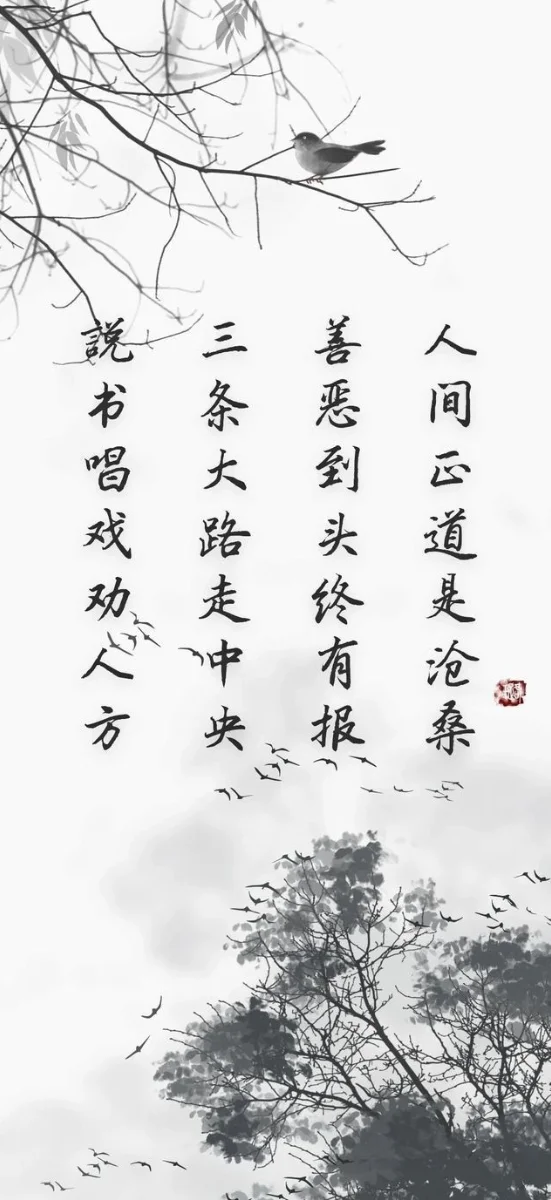 人间正道是沧桑
善恶到头终有报
三条大路走中央
説书唱戏劝人方